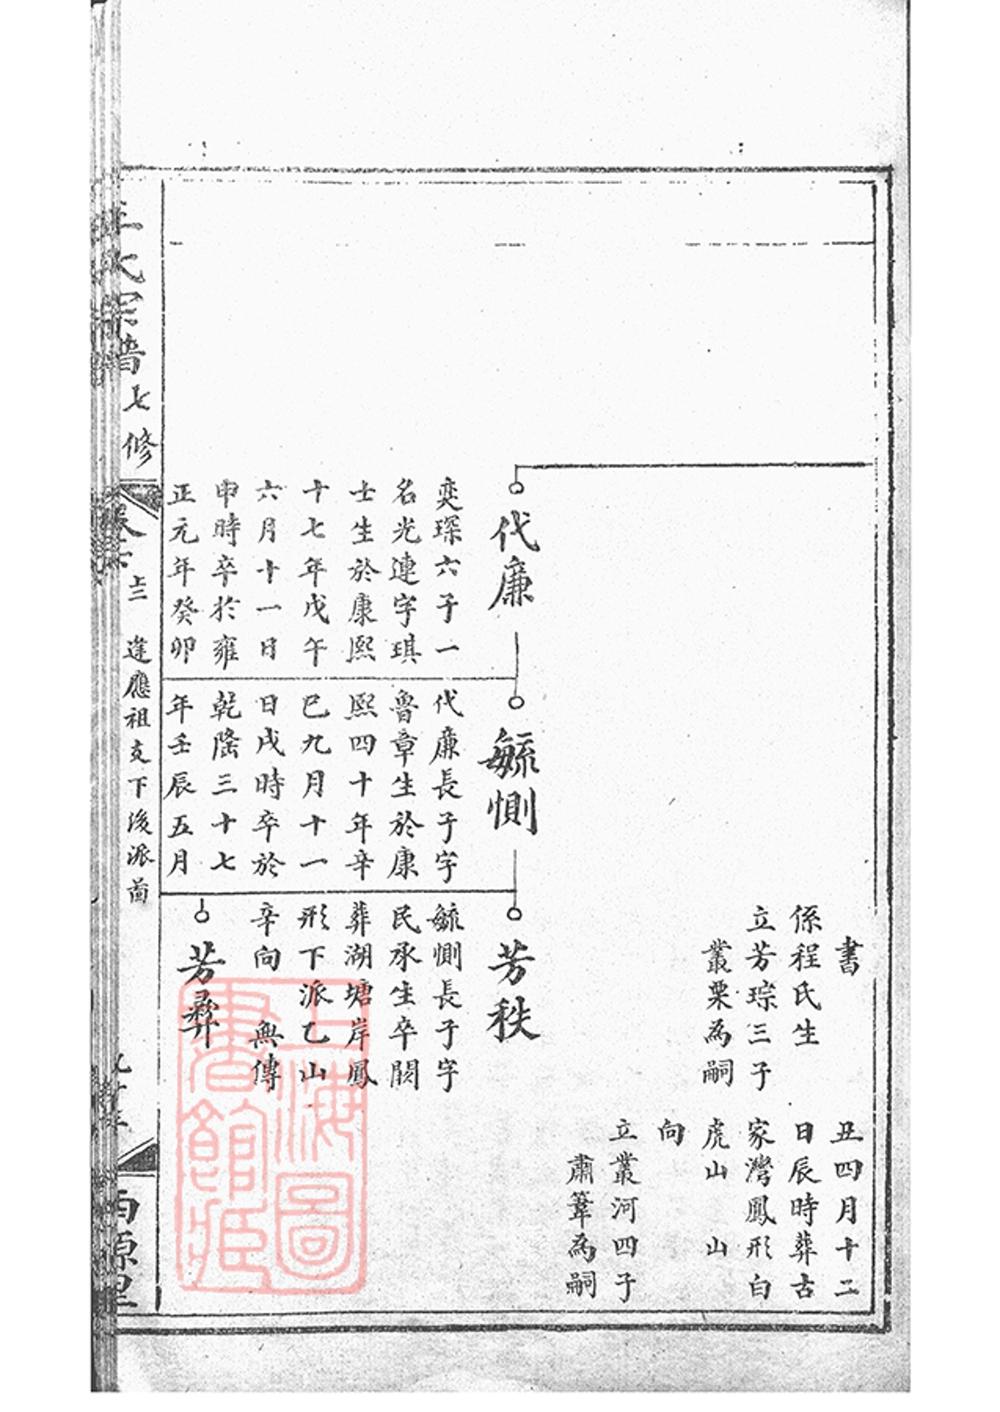 書
係程氏生
立芳琮三子
叢栗為嗣
丑四月十二
日辰時葬古
家灣鳳形白
虎山 山
向
立叢河四子
肅葦為嗣
代廉
奕琛六子一
名光連字琪
士生於康熙
十七年戊午
六月十一日
申時卒於雍
正元年癸卯
毓惻
代廉長子字
魯章生於康
熙四十年辛
巳九月十一
日戌時卒於
乾隆三十七
年壬辰五月
芳秩
毓惻長子字
民承生卒闕
葬湖塘岸鳳
形下派乙山
辛向 無傳
芳彞
王氏宗譜 七修
逢應祖支下浚派啚
上海圖書館藏